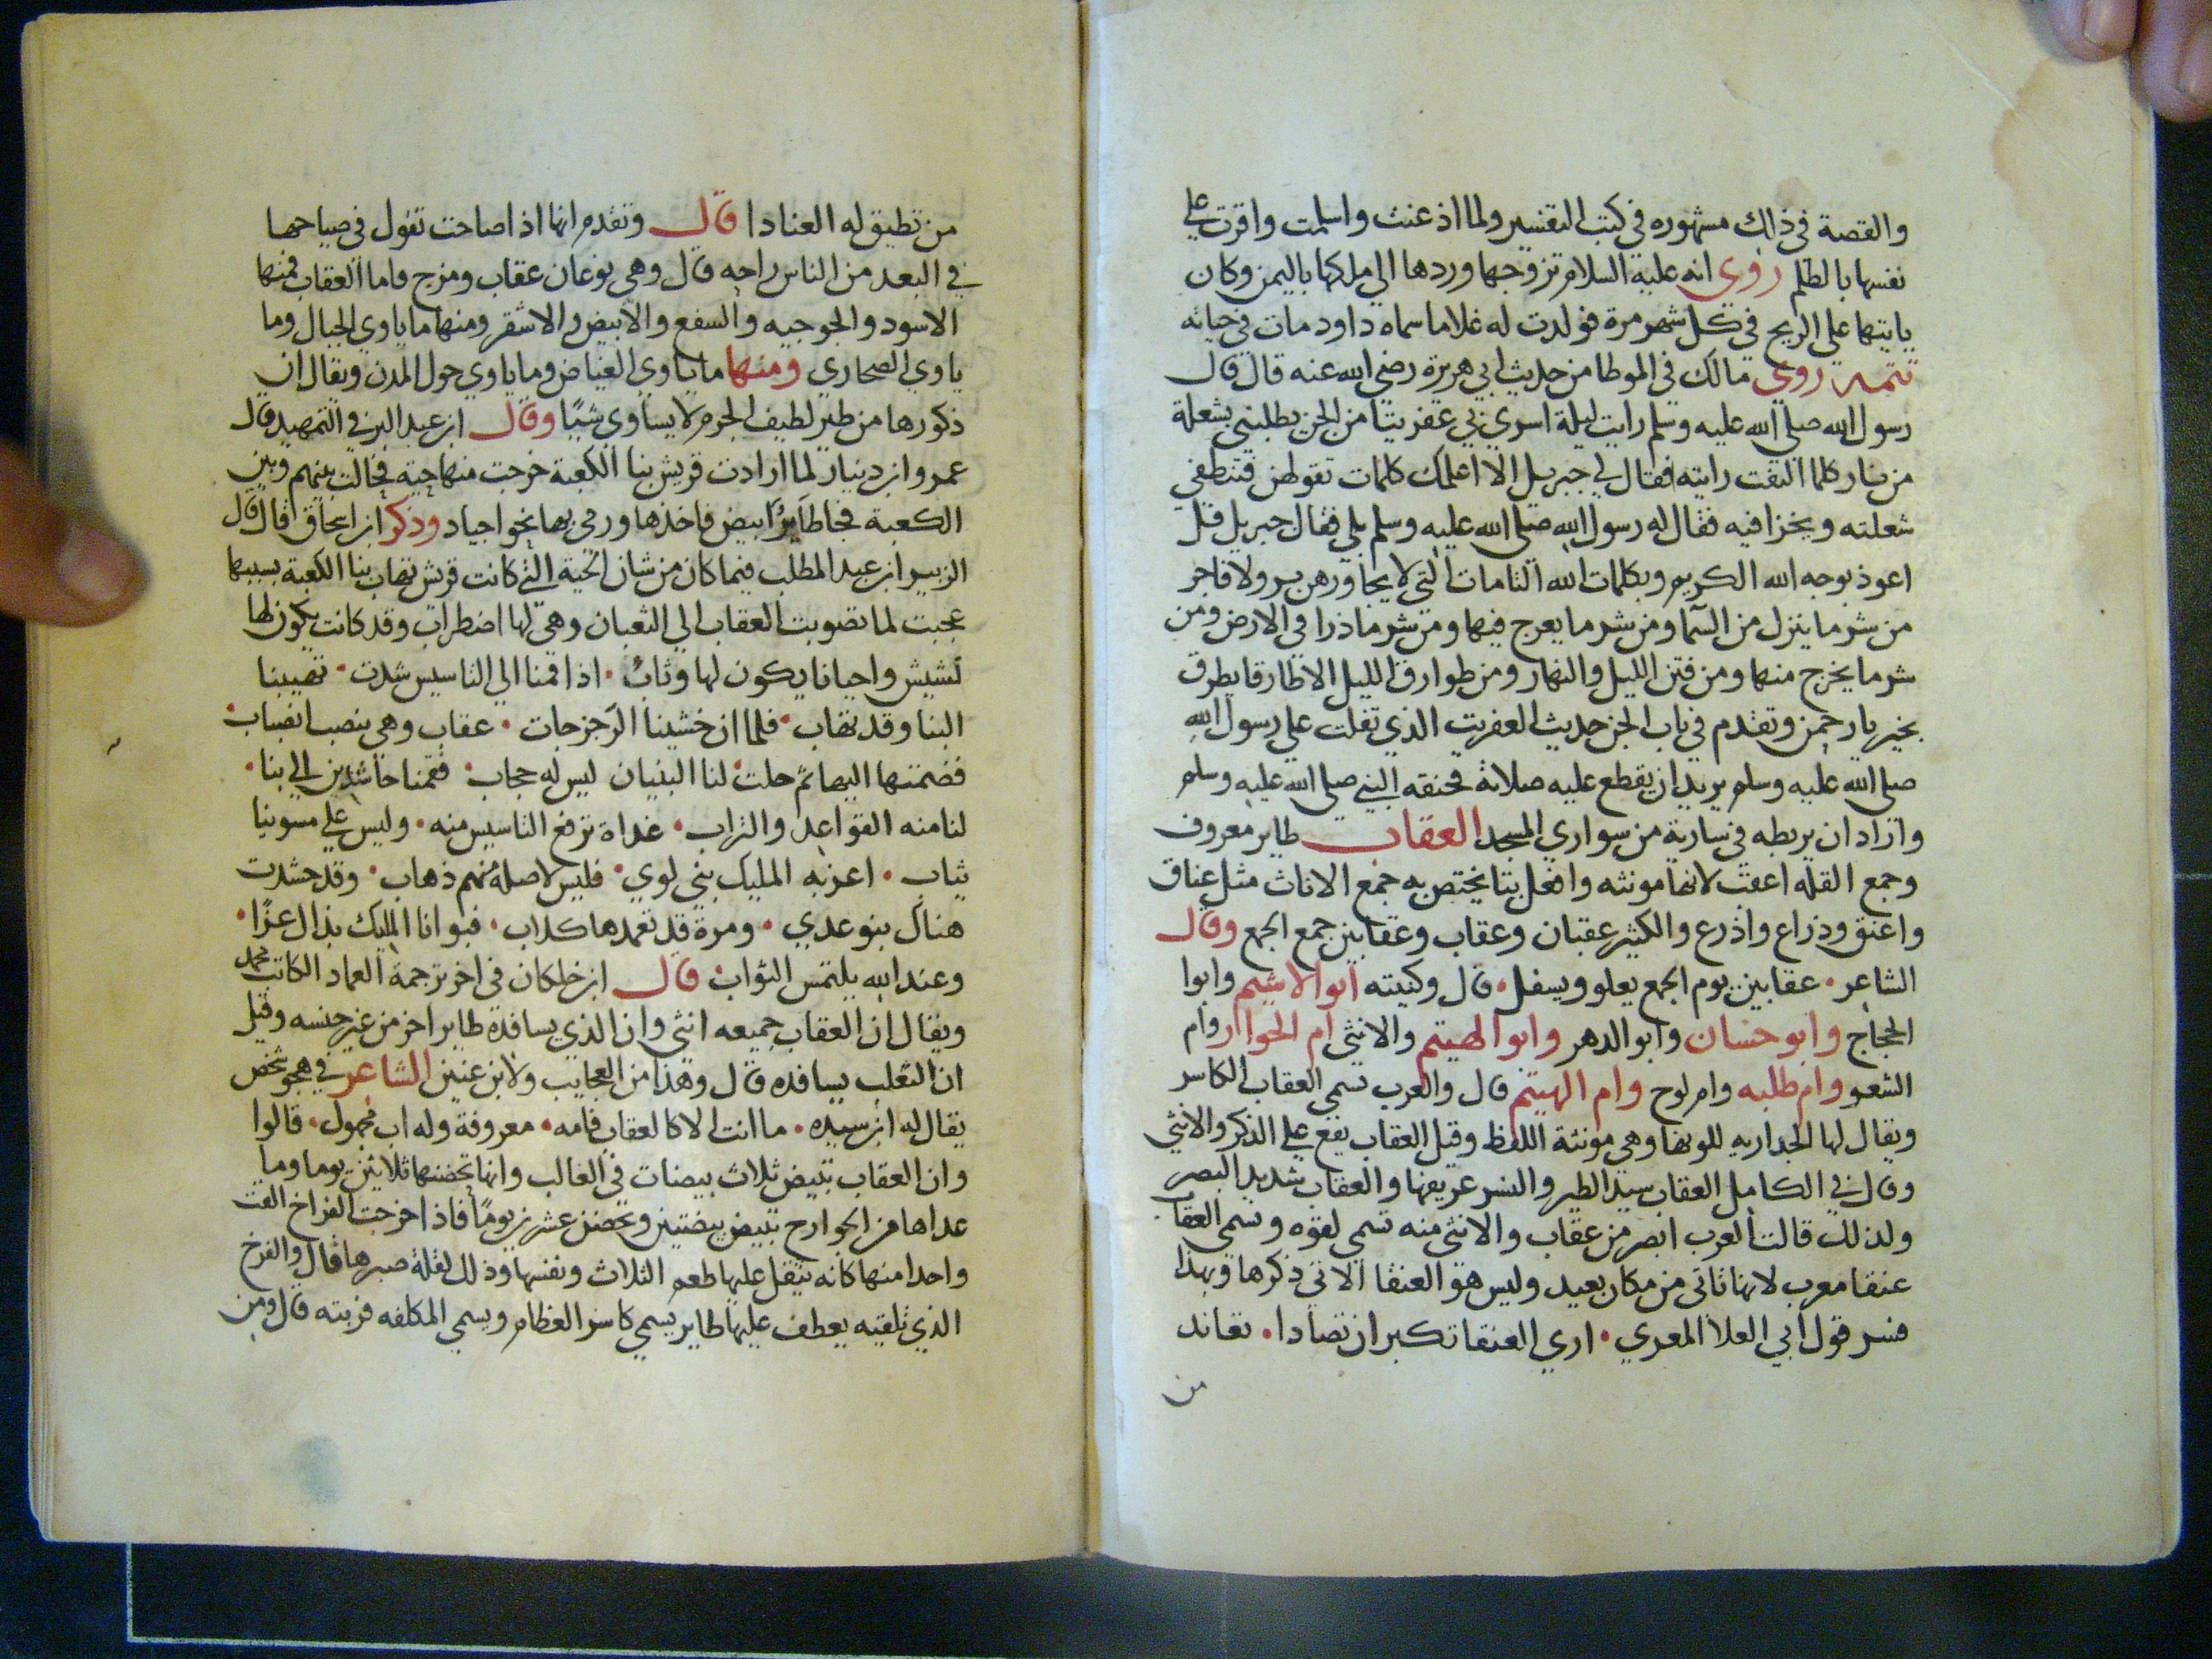 والقصة في ذلك مشهوره في كتب التفسير ولما اذعنت واسلمت واقرت علي
نفسها بالظلم روي انه عليه السلام تزوجها وردها الي ملكها باليمن وكان
ياتيها علي الريح في كل شهر مرة فولدت له غلاما سماه داود مات في حياته
تتمه روي مالك في الموطا من حديث ابي هريرة رضي الله عنه قال قال
رسول الله صلي الله عليه وسلم رايت ليلة اسري بي عفريتا من الجن يطلبني بشعلة
من نار كلما التفت رايته فقال لي جبريل الا اعلمك كلمات تقولهن فتنطفي
شعلته ويخزا فيه فقال له رسول الله صلي الله عليه وسلم بلي فقال جبريل قل
اعوذ بوجه الله الكريم وبكلمات الله التامات التي لا يجاوزهن بر ولا فاجر
من شر ما ينزل من السما ومن شر ما يعرج فيها ومن شر ما ذرا في الارض ومن
شر ما يخرج منها ومن فتن الليل والنهار ومن طوارق الليل الا طارقا يطرق
بخير يا رحمن وتقدم في باب الجن حديث العفريت الذي تفلت علي رسول الله
صلي الله عليه وسلم يريد ان يقطع عليه صلاته فخنقه النبي صلي الله عليه وسلم
واراد ان يربطه في سارية من سواري المسجد العقاب طاير معروف
وجمع القله اعقب لانها مونثه وافعل بنا يختص به جمع الاناث مثل عناق
واعنق وذراع واذرع والكثير عقبان وعقاب وعقابين جمع الجمع وقال
الشاعر • عقابين يوم الجمع يعلو ويسفل • قال وكنيته ابو الاشيم وابوا
الحجاج وابو حسان وابو الدهر وابو الهيثم والانثي ام الحوار وام
الشعو وام طلبه وام لوح وام الهيثم قال والعرب تسمي العقاب الكاسر
ويقال لها الخداريه للونها وهي مونثة اللفظ وقيل العقاب يقع علي الذكر والانثي
وقال في الكامل العقاب سيد الطير والنسر عريفها والعقاب شديد البصر
ولذلك قالت العرب ابصر من عقاب والانثي منه تسمي لقوه وتسمي العقاب
عنقا مغرب لانها تاتي من مكان بعيد وليس هو العنقا الاتي ذكرها وبهذا
فسر قول ابي العلا المعري • اري العنقا تكبر ان تصادا • تعاند
من
من تطيق له العنادا قال وتقدم انها اذا صاحت تقول في صياحها
في البعد من الناس راحه قال وهي نوعان عقاب ومزج فاما العقاب فمنها
الاسود والخوجيه والسفع والابيض والاشقر ومنها ما ياوي الجبال وما
ياوي الصحاري ومنها ما ياوي الغياض وما ياوي حول المدن ويقال ان
ذكورها من طير لطيف الجرم لا يساوي شيًا وقال ابن عبد البر في التمهيد قال
عمرو ابن دينار لما ارادت قريش بنا الكعبة خرجت منها حية فحالت بينهم وبين
الكعبة فجا طايرٌ ابيض فاخذها ورمي بها نحو اجياد وذكر ابن اسحاق قال قال
الزبير ابن عبد المطلب فيما كان من شان الحية التي كانت قريش تهاب بنا الكعبة بسببها
عجبت لما تصوبت العقاب الي الثعبان وهي لها اضطراب وقد كانت يكون لها
كشيش واحيانا يكون لها وثاب • اذا قمنا الي التاسيس شدت • تهيبنا
البنا وقد تهاب • فلما ان خشينا الرجز جات • عقاب وهي ينصب انصباب •
فضمتها اليها ثم خلت لنا البنيان ليس له حجاب • فقمنا حاشدين الي بنا •
لنا منه القواعد والتراب • غداة ترفع التاسيس منه • وليس علي مسوينا
ثياب • اعز به المليك بني لوي • فليس لاصله منهم ذهاب • وقد حشدت
هناك بنو عدي • ومرة قد تعمدها كلاب • فبوانا المليك بذاك عزًا •
وعند الله يلتمس الثواب قال ابن خلكان في اخر ترجمة العماد الكاتب محمد
ويقال ان العقاب جميعه انثي وان الذي يسافده طاير اخر من غير جنسه وقيل
ان الثعلب يسافده قال وهذا من العجايب ولابن عنين الشاعر في هجو شخص
يقال له ابن سيده • ما انت الا كالعقاب فامه • معروفة وله اب مجهول • قالوا
وان العقاب تبيض ثلاث بيضات في الغالب وانها تحضنها ثلاثين يوما وما
عداها من الجوارح تبيض بيضتين وتحضن عشرين يومًا فاذا خرجت الفراخ القت
واحدا منها كانه يثقل عليها طعم الثلاث ونفسها وذلك لقلة صبرها قال والفرخ
الذي تلقيه يعطف عليها طاير يسمي كاسر العظام ويسمي المكلفه فربته قال ومن